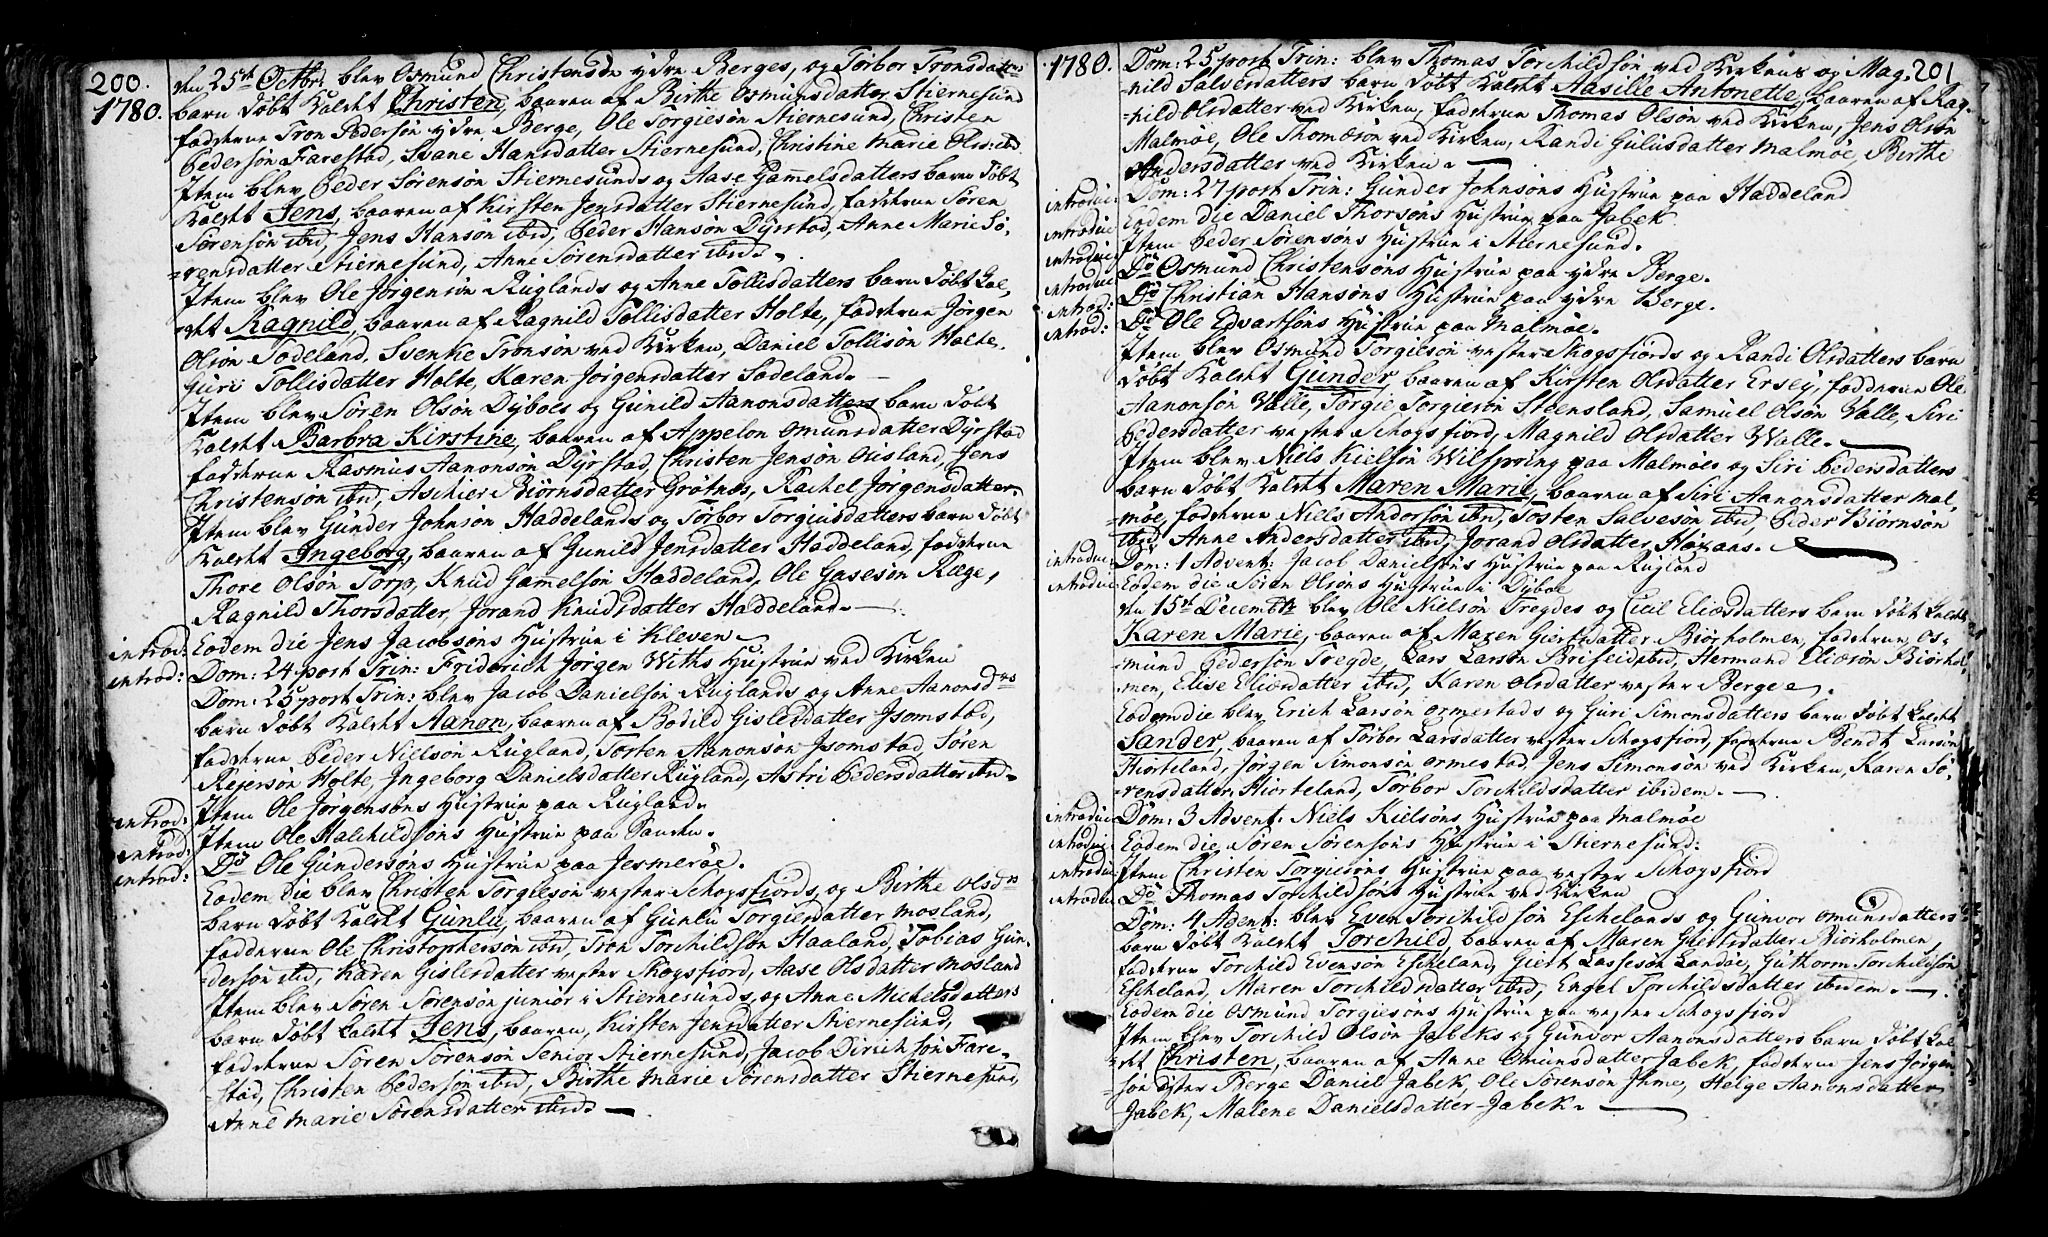 200.
1780.
den 25de Octbr: blev Osmund Christensøn ydre Berges, og Torbor Tronsdatrs
barn døbt kaldet Christen, baaren af Birthe Osmunsdatter Stiernesund
fadderne Tron Pedersøn ydre Berge, Ole Torgiesøn Stiernesund, Christen
Pedersøn Farestad, Svane Hansdatter Stiernesund, Christine Marie Olsd: ibd
Item blev Peder Sørensøn Stiernesunds og Aase Gamelsdatters barn døbt
kaldet Jens, baaren af Kirsten Jensdatter Stiernesund, fadderne Søren
Sørensøn ibid, Jens Hanson ibid, Peder Hansøn Dyrstad, Anne Marie Sø-
-rensdatter Stiernesund, Anne Sørensdatter ibid.
Item blev Ole Jørgensøn Ruglands og Anne Tollisdatters barn døbt kal-
-det Ragnild, baaren af Ragnild Tollisdatter Holte, fadderne Jørgen
Olsøn Sodeland, Svenke Tronsøn ved Kirken, Daniel Tollisøn Holte,
Guri Tollisdatter Holte, Karen Jørgensdatter Sodeland.
Item blev Søren Olsøn Dyboes og Gunild Aanonsdatters barn døbt
kaldet Barbra Kirstine, baaren af Appelon Omunsdatter Dyrstad
fadderne Rasmus Aanonsøn Dyrstad, Christen Jensøn Ousland, Jens
Christensøn ibid, Aschier Biørnsdatter Grøtnes, Rachel Jørgensdatter.
Item blev Gunder Johnsøn Haddelands og Torbor Torgiusdatters barn døbt
kaldet Ingeborg, baaren af Gunild Jensdatter Haddeland, fadderne
Thore Olsøn Torp, Knud Gamelsøn Haddeland, Ole Gasesøn Ræge,
Ragnild Thorsdatter, Jorand Knudsdatter Haddeland.
introd: Eodem die Jens Jacobsøns Hustrue i Kleven
introd: Dom: 24 post Trin: Friderich Jørgen Withs Hustrue ved Kirken
Dom: 25 post Trin: blev Jacob Danielsøn Ruglands og Anne Aanonsdrs
barn døbt kaldet Aanon, baaren af Bodild Gislesdatter Isomstad,
fadderne Peder Nielsøn Rugland, Tosten Aanonsøn Isomstad, Søren
Rejersøn Holte, Ingeborg Danielsdatter Rugland, Astri Pedersdatter ibid
introd: Item Ole Jørgensøns Hustrue paa Rugland.
introd: Item Ole Halchildsøns Hustrue paa Sanden.
introd: Do Ole Gundersøns Hustrue paa Jesmerøe.
Eodem die blev Christen Torgiesøn vester Schogsfiords, og Birthe Olsdrs
barn døbt kaldet Gunlu, baaren af Gunlu Torgiesdatter Mosland,
fadderne Ole Christophersøn ibid, Tron Torchildsøn Haaland, Tobias Gun-
-dersøn ibid, Karen Gislesdatter vester Skogsfiord, Aase Olsdatter Mosland
Item blev Søren Sørensøn junior i Stiernesunds og Anne Michelsdatters
barn døbt kaldet Jens, baaren, Kirsten Jensdatter Stiernesund,
fadderne Søren Sørensøn Senior Stiernesund, Jacob Dirichsøn Fare-
-stad, Christen Pedersøn ibid, Birthe Marie Sørensdatter Stiernesund,
Anne Marie Sørensdatter ibid.
1780.
201
Dom: 25 post Trin: blev Thomas Torchildsøn ved Kirkens og Mag-
-nild Salvesdatters barn døbt kaldet Aasille Antonette, baaren af Rag-
-nild Olsdatter ved Kirken, fadderne Thomas Olsøn ved Kirken, Jens Olsøn
Malmøe, Ole Thomæsøn ved Kirken, Randi Gulusdatter Malmøe, Birthe
Andersdatter ved Kirken.
introduc: Dom: 27 post Trin: Gunder Johnsøns Hustrue paa Haddeland
introduc Eodem die Daniel Thorsøns Hustrue paa Jabek
introduc: Item Peder Sørensøns Hustrue i Stiernesund.
introduc Do Osmund Christensøns Hustrue paa ydre Berge.
introd: Do Christian Hansøns Hustrue paa ydre Berge.
introd: Do Ole Edvartsøns Hustrue paa Malmøe.
Item blev Osmund Torgiesøn vester Skogsfiords og Randi Olsdatters barn
døbt kaldet Gunder, baaren af Kirsten Olsdatter Ersey, fadderne Ole
Aanonsøn Valle, Torgie Torgiesøn Steensland, Samuel Olsøn Valle, Siri
Pedersdatter vester Schogsfiord, Magnild Olsdatter Walle.
Item blev Niels Kielsøn Wilspring paa Malmøes og Siri Pedersdatters
barn døbt kaldet Maren Marie, baaren af Siri Aanonsdatter Mal-
-møe, fadderne Niels Andersøn ibid, Tosten Salvesøn ibid, Peder Biørnsøn
ibid, Anne Andersdatter ibid, Jorand Olsdatter Høxaas.
introduc: Dom: 1 Advent: Jacob Danielsøns Hustrue paa Rugland
introduc: Eodem die Søren Olsøns Hustrue i Dyboe
den 15de Decembr: blev Ole Nielsøn Tregdes og Cicil Eliæsdatters barn døbt kaldet
Karen Marie, baaren af Maren Giertsdatter Biørholmen, fadderne, Os-
-mund Pedersøn Tregde, Lars Larsøn Briseid ibid, Hermand Eliæsøn Biørhol-
-men, Elise Eliæsdatter ibid, Karen Olsdatter vester Berge.
Eodem die blev Erich Larsøn Ormestads og Guri Simonsdatters barn døbt kaldet
Sander, baaren af Torbor Larsdatter vester Schogsfiord, fadderne Bendt Larsøn
Hiorteland, Jørgen Simonsøn Ormestad, Jens Simonsøn ved Kirken, Karen Sø-
-rensdatter Hiorteland, Torbor Torchildsdatter ibidem.
introduc Dom: 3 Advent: Niels Kielsøns Hustrue paa Malmøe
introduc: Eodem die Søren Sørensøns Hustrue i Stiernesund:
introduc Item Christen Torgiesøns Hustrue paa vester Schogsfiord
introduc Do Thomas Torchildsøns Hustrue ved Kirken
Dom: 4 Adent: blev Even Torchildsøn Eschelands og Gunvor Omunsdatters
barn døbt kaldet Torchild, baaren af Maren Giertsdatter Biørholmen,
fadderne Torchild Evensøn Escheland, Giert Lassesøn Landøe, Guthorm Torchildsøn
Escheland, Maren Torchildsdatter ibid, Engel Torchildsdatter ibidem.
Eodem die Osmund Torgiesøns Hustrue paa vester Schogsfiord
Item blev Torchild Olsøn Jabeks og Gunvor Aanonsdatters barn døbt kal-
-det Christen, baaren af Anne Omunsdatter Jabek, fadderne Jens Jørgen-
-søn ydre Berge, Daniel Jabek, Ole Sørensøn Ihme, Helge Aanonsdatter
Jabek, Malene Danielsdatter Jabek.